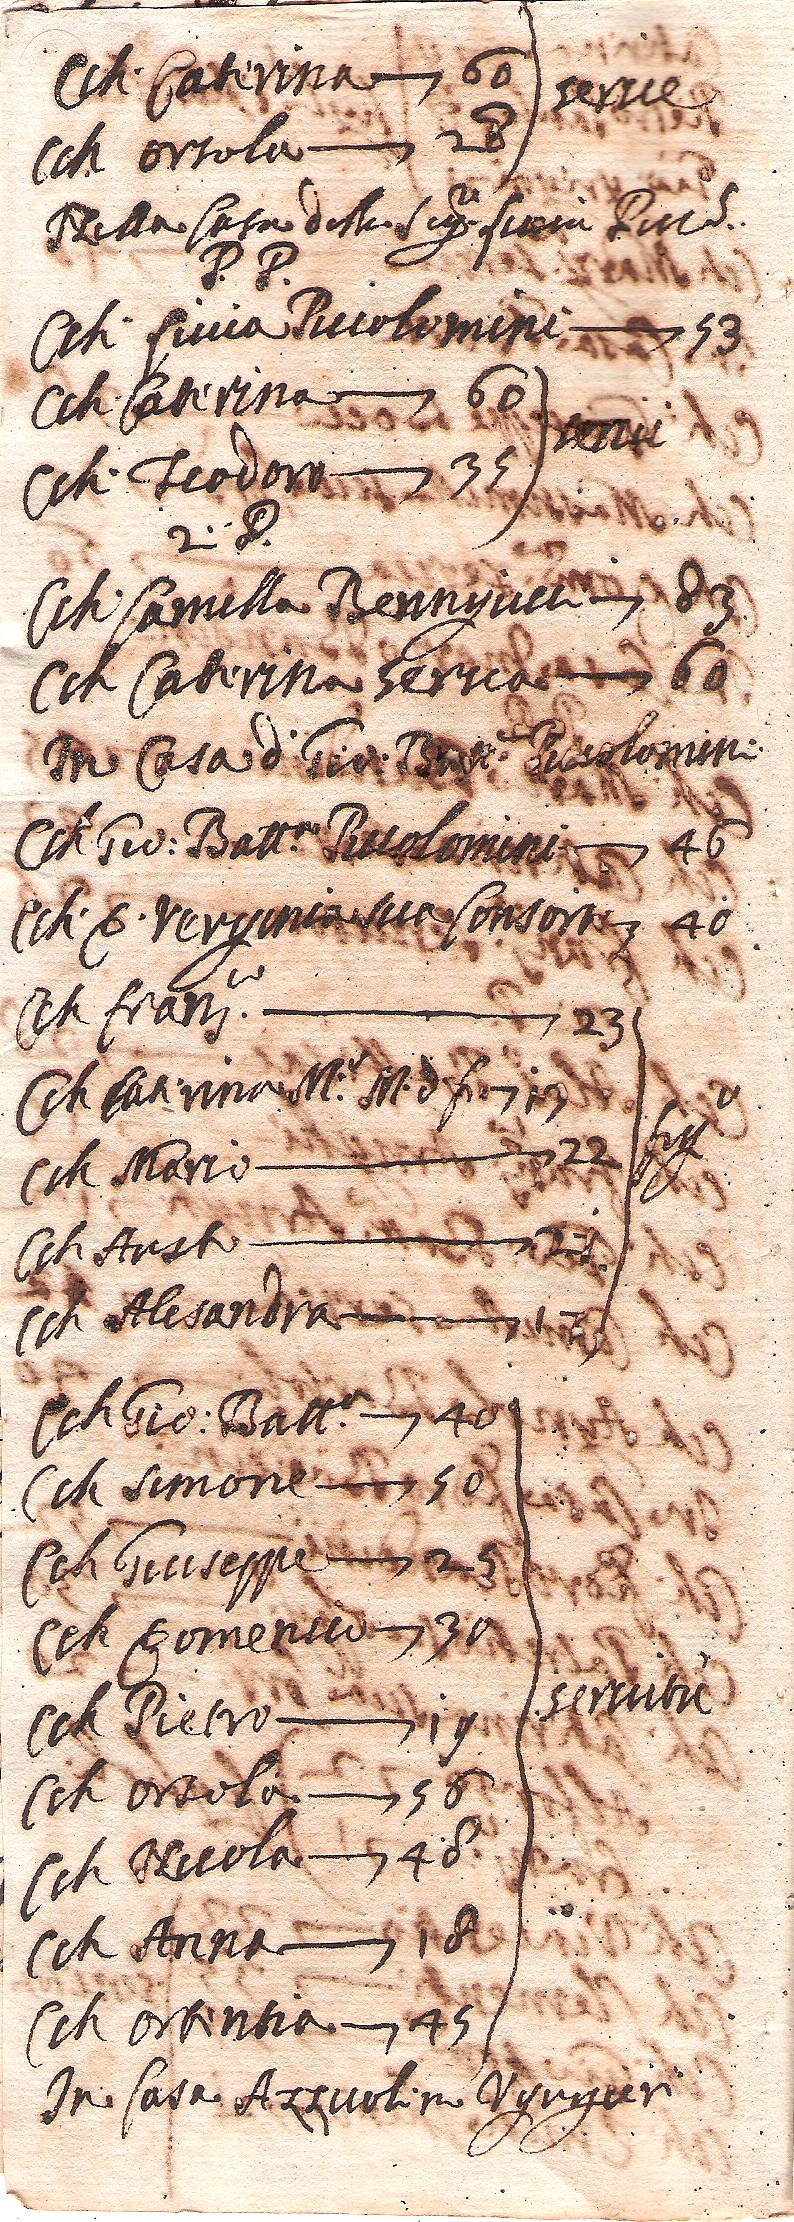 CCh. Caterina 60 } serue
CCh orsola 28
Nella Casa della Sig.ra Liuia Picc.
P. P.
CCh. Liuia Piccolomini 53
CCh. Caterina 60 } serui
CCh. Teodoro 35
2. P.
CCh. Camilla 83
CCh Caterina serua 60
In Casa d Gio: Batt.a Piccolomini
CCh Gio: Batt.a Piccolomini 46
CCh. C. Verginia sua Consorte 40
CCh Franc.co 23
CCh Caterina M.a M. d F.
CCh Mario 22 } figli
CCh
CCh Alesandra
CCh Gio: Batt.a 40
CCh Simone 50
CCh Giuseppe 25
CCh Domenico 30
CCh Pietro 19 } seruitù
CCh orsola 56
CCh Nicola 48
CCh Anna 18
CCh ortentia 45
In Casa Azzuolin Vgurgieri